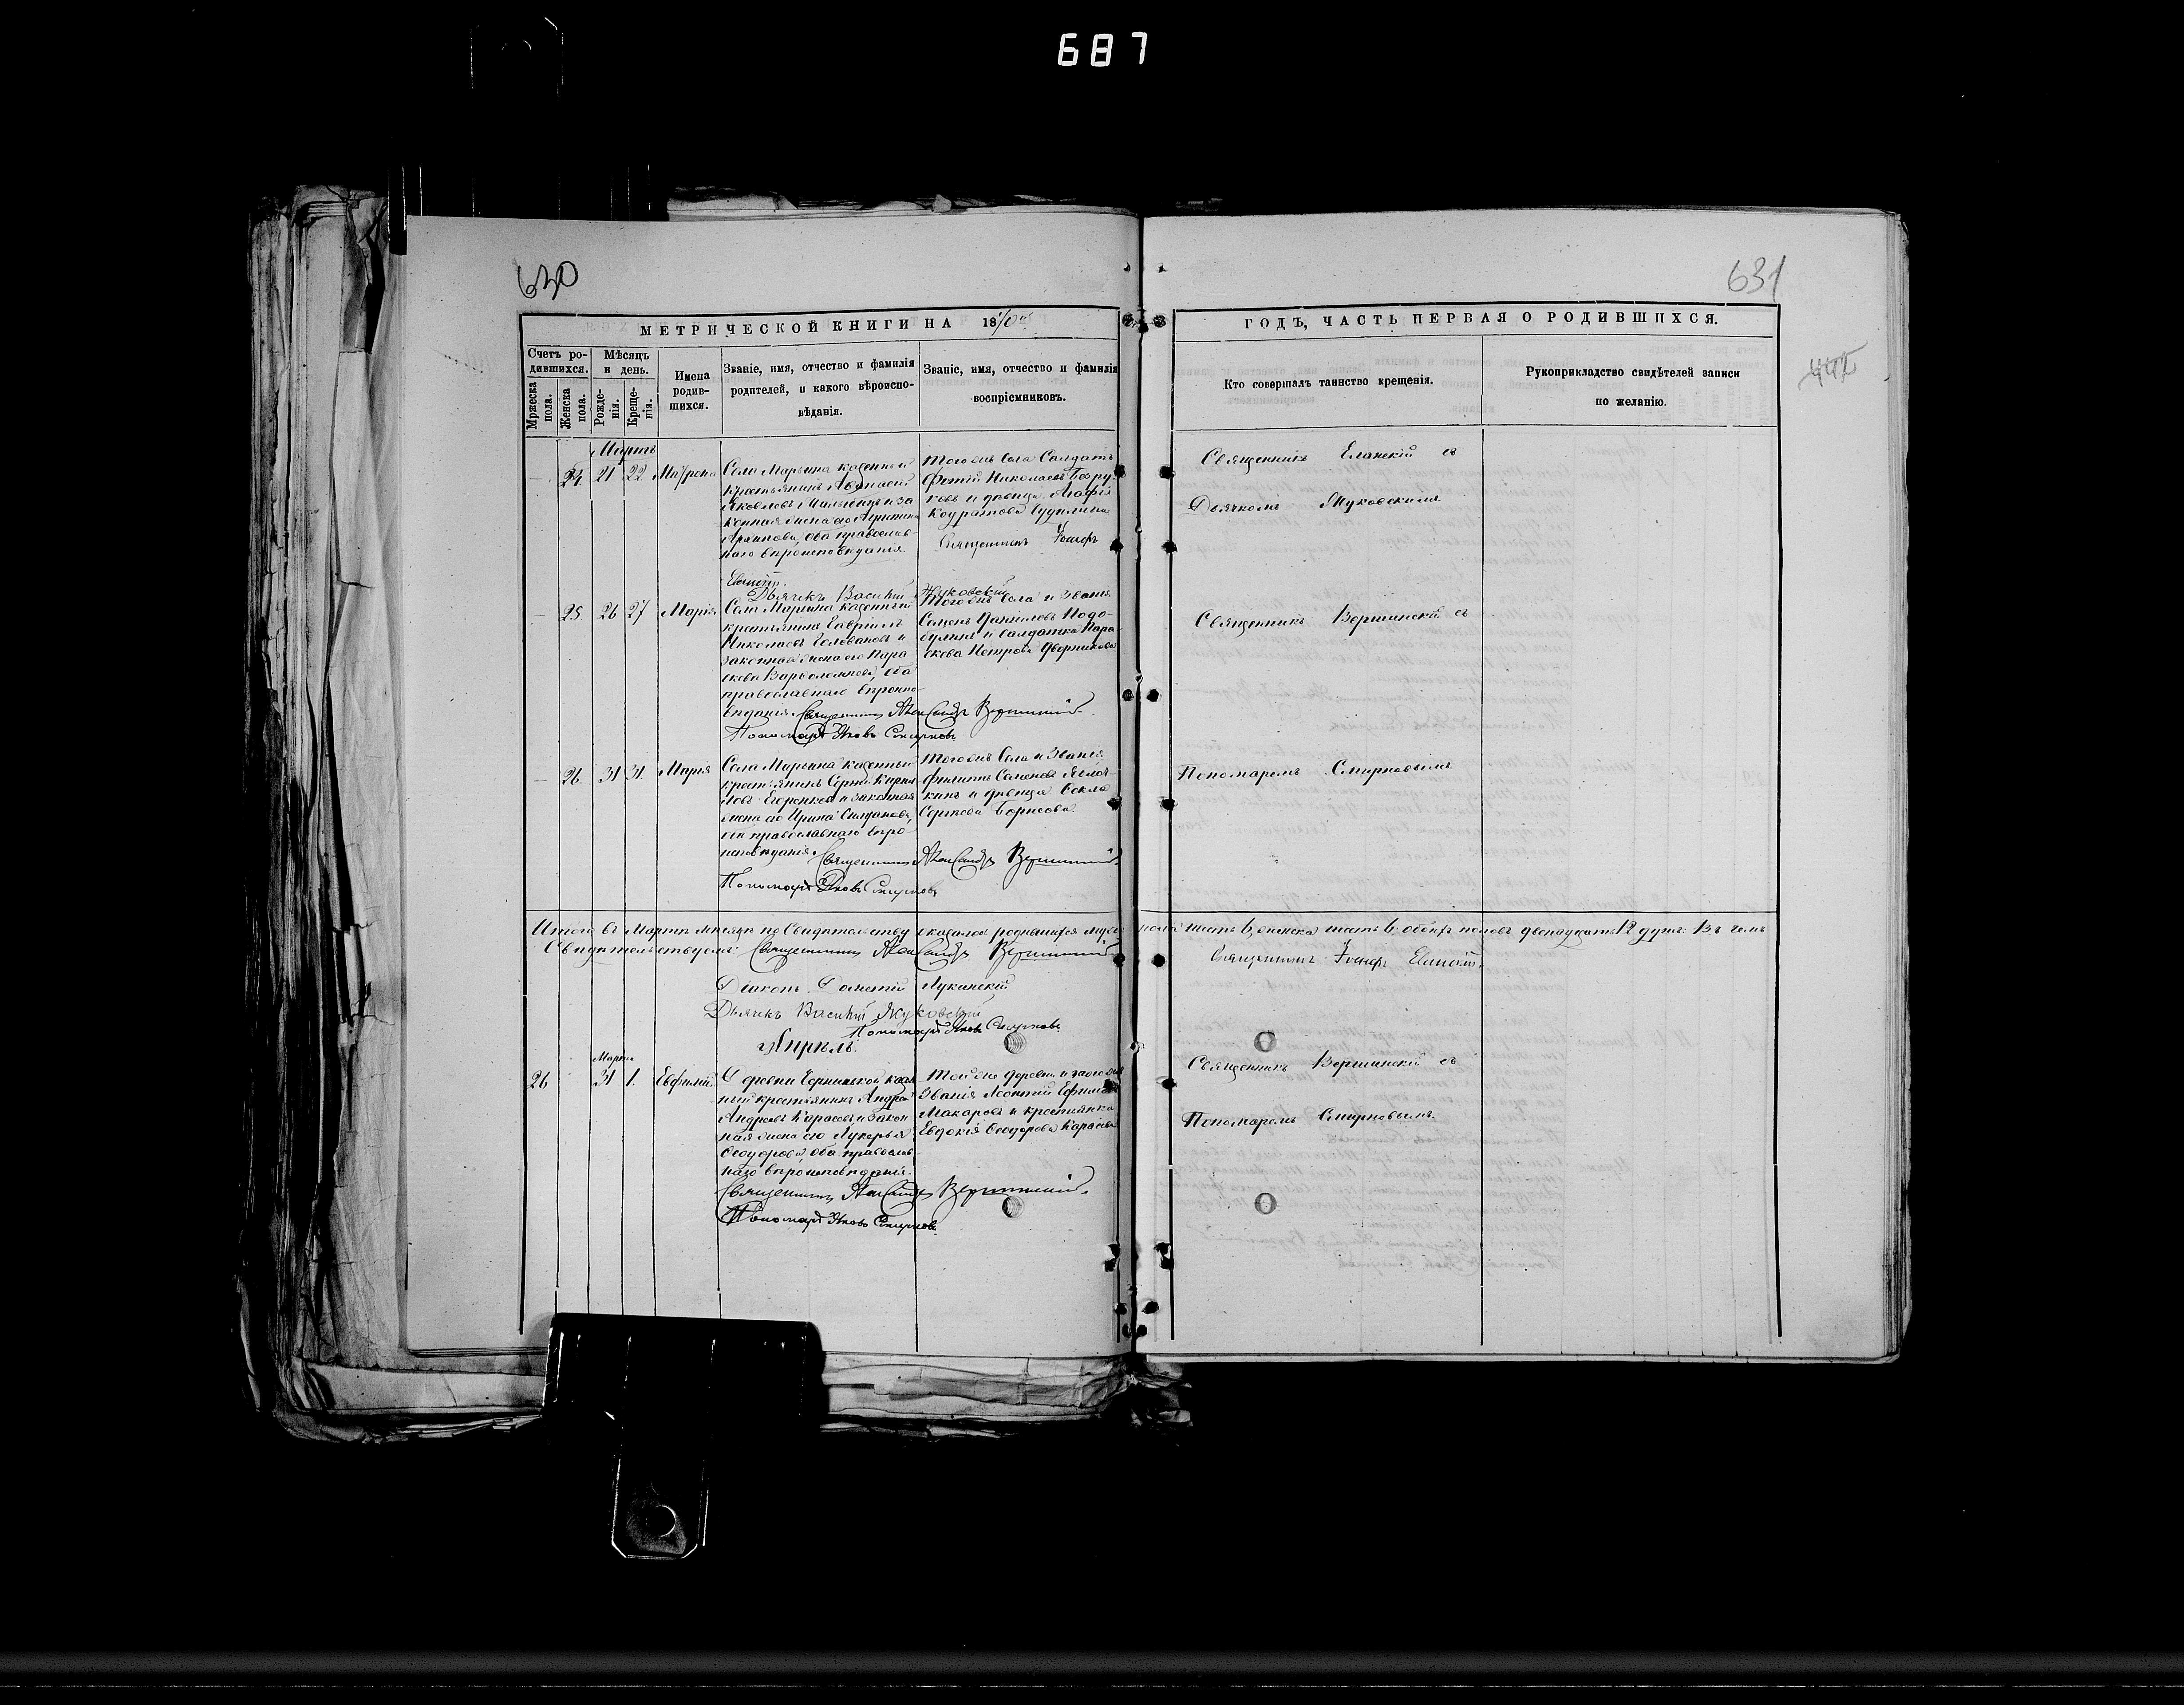 687
630
631
МЕТРИЧЕСКОЙ КНИГИ НА 1870й
ГОДЪ, ЧАСТЬ ПЕРВАЯ О РОДИВШИХСЯ.
Счетъ родившихся.
Мужеска пола.
Женска пола.
Мѣсяцъ и день.
Рожденія.
Крещенія.
Имена родившихся.
Званіе, имя, отчество и фамилія
родителей, и какого вѣроиспо-
вѣданія.
Званіе, имя, отчество и фамилія
воспріемниковъ.
Кто совершалъ таинство крещенія.
Рукоприкладство свидѣтелей записи
по желанію.
Мартъ
24 21 22 Матрона
Села Марьина казенный
крестьянинъ Аѳанасій
Яковлевъ и за
конная жена его
Архипова, оба православ-
наго вѣроисповѣданія.
Тогожъ села Солдатъ
Фотій Николаевъ Безру-
ковъ и дѣвица Агафія
Священникъ Іосифъ
Еланскій.
Дьячекъ Василій Жуковскій
Священникъ Еланскій съ
Дьячкомъ Жуковскимъ
25 26 27 Марія
Села Марьина казенный
крестьянинъ Гавріилъ
Николаевъ Головановъ и
законная жена его Пара
скева Варѳоломеева, оба
православнаго вѣроиспо-
вѣданія. Священникъ Александръ Вершинскій
Пономарь Яковъ Смирновъ
Тогожъ села и званія
Семенъ Даниловъ
и солдатка Пара
скева Петрова Дворникова
Священникъ Вершинскій съ
26 31 31 Марія
Села Марьина казенный
крестьянинъ Сергій Кирил
ловъ и законная
жена его Ирина
оба православнаго вѣро-
исповѣданія. Священникъ Александръ Вершинскій
Пономарь Яковъ Смирновъ
Тогожъ села и званія
Филиппъ Семеновъ
и дѣвица Ѳекла
Сергѣева Борисова.
Пономаремъ Смирновымъ
Итого въ Мартѣ мѣсяцѣ по свидѣтельству оказалось родившихся мужеска пола шесть 6, женска шесть 6; обоихъ половъ двенадцать 12 душъ: Въ чемъ
Свидѣтельствуемъ: Священникъ Александръ Вершинскій
Священникъ Іосифъ Еланскій.
Діаконъ Лукинскій
Дьячекъ Василій Жуковскій
Пономарь Яковъ Смирновъ
Апрѣль.
Марта
26 31 1. Евфимій
деревни казен
ный крестьянинъ Андрей
Андреевъ Карасевъ и закон
ная жена его Лукерья
Ѳеодорова, оба православ
наго вѣроисповѣданія.
Священникъ Александръ Вершинскій
Пономарь Яковъ Смирновъ
Той же деревни и тогожъ
званія Леонтій Ефимовъ
Макаровъ и крестьянка
Евдокія Ѳеодорова Карасева
Священникъ Вершинскій съ
Пономаремъ Смирновымъ.